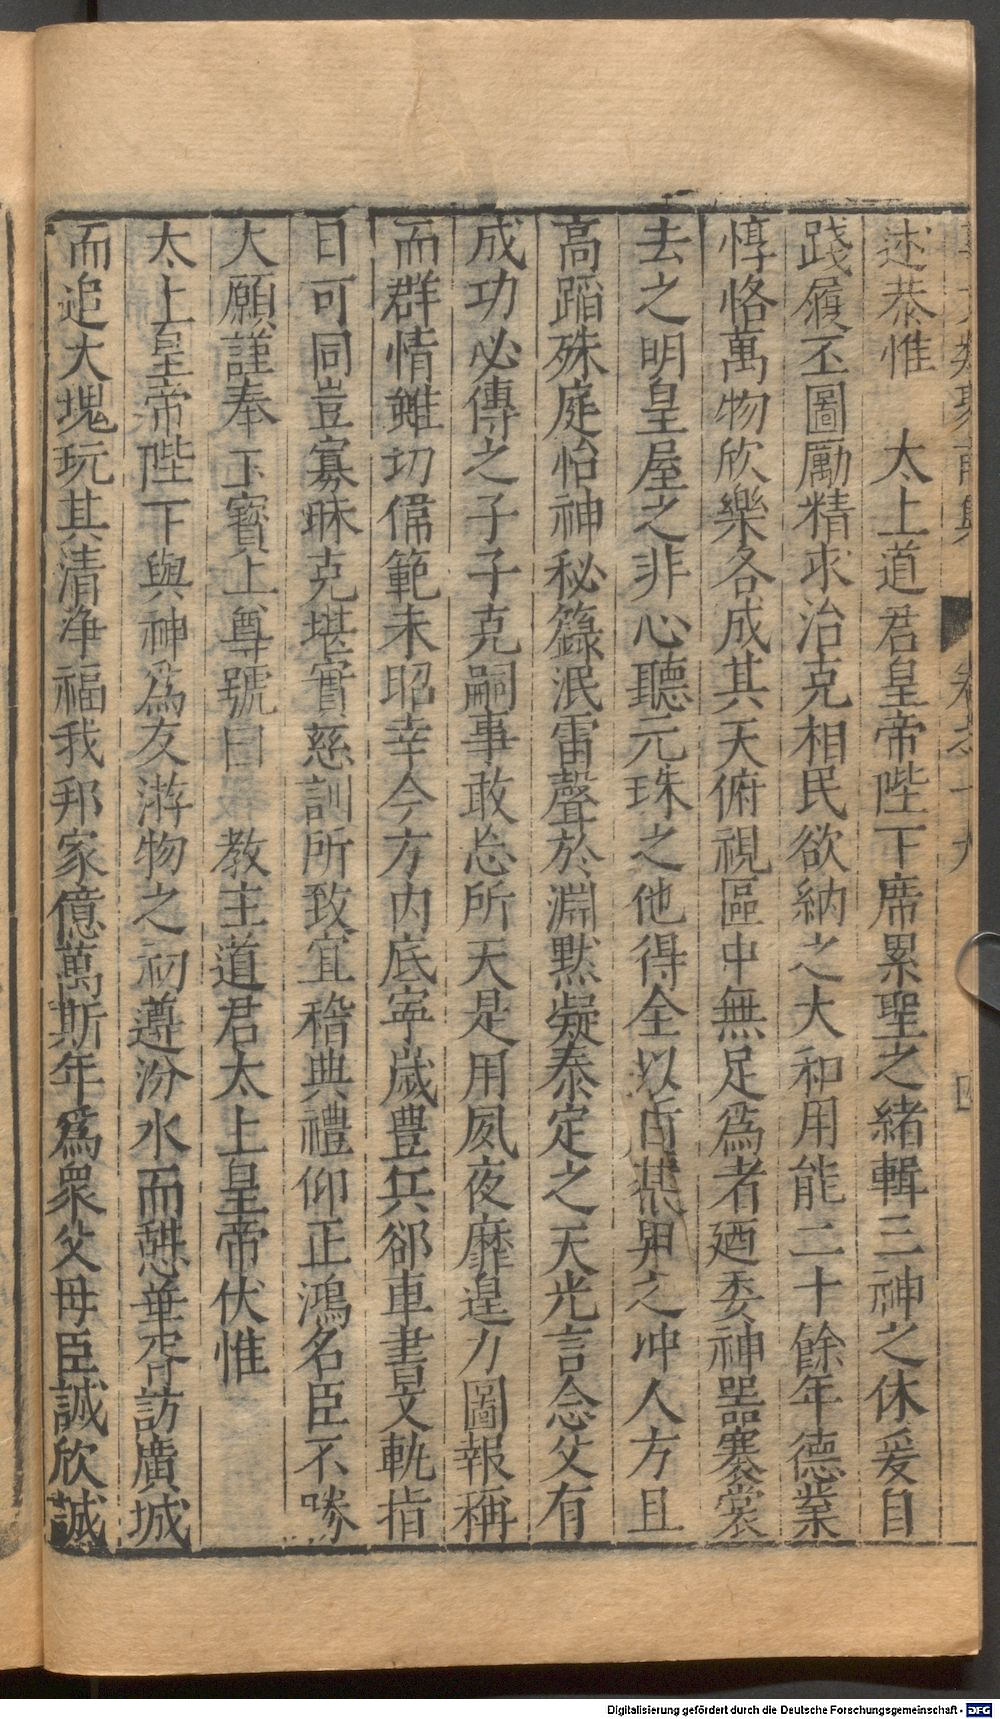 述恭惟　太上道君皇帝陛下席累聖之緒輯三神之休爰自
踐履丕圖勵精求治克相民欲納之大和用能二十餘年德業
惇恪萬物欣樂各成其天俯視區中無足爲者廼委神器褰裳
去之明皇屋之非心聽元珠之他得全以盾其畀之冲人方且
高蹈殊庭怡神秘籙泯雷聲於淵黙凝泰定之天光言念父有
成功必傳之子子克嗣事敢忘所天是用夙夜靡遑力圖報稱
而群情雖切備範未昭幸今方内底寧歲豊兵郤車書文軌指
日可同豈寡昧克堪實慈訓所致宜稽典禮仰正鴻名臣不勝
大願謹奉玉寳上尊號曰　教主道君太上皇帝伏惟
太上皇帝陛下與神爲友游物之初遵汾水而憇華胥訪廣城
而追大塊玩其清浄福我邦家億萬斯年爲衆父母臣誠欣誠
卷之十九
四
Digitalisierung gefördert durch die Deutsche Forschungsgemeinschaft - DFG